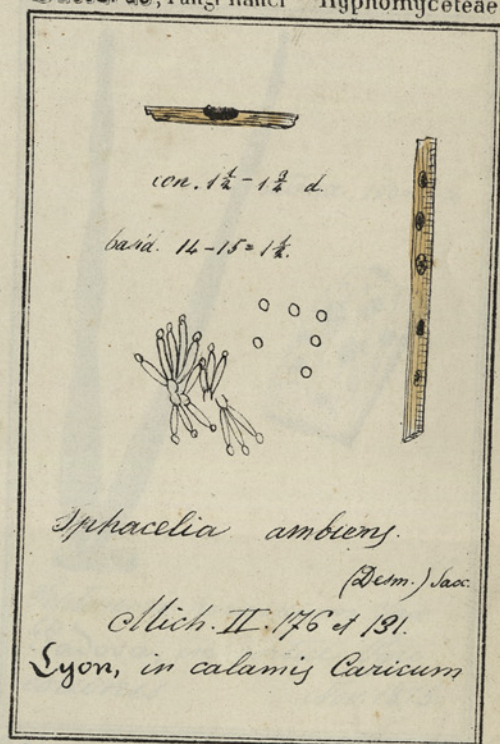 Fungi Italici Hyphomyceteae
con. 1½-1¾ d.
basid. 14-15=1½.
Sphacelia ambiens.
(Desm.) Sacc.
Mich. II. 176 et 131.
Lyon, in calamis Caricum